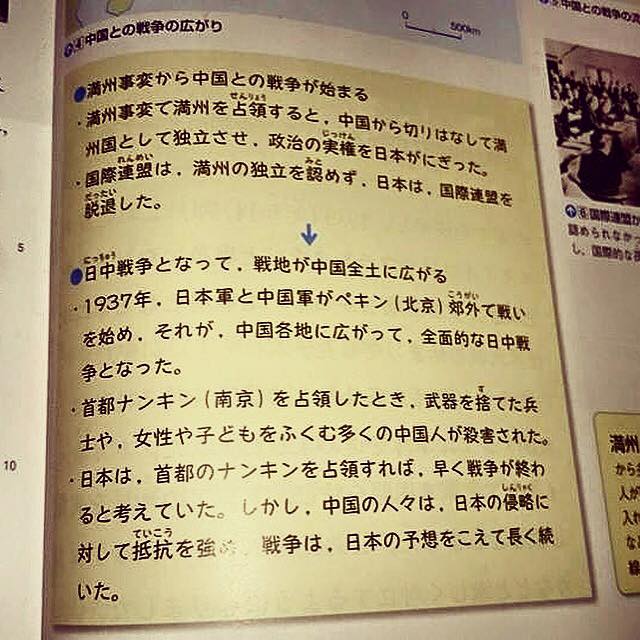 ④中国との戦争の広がり
0 500km
●満州事変から中国との戦争が始まる
・満州事変で満州を占領すると，中国から切りはなして満
州国として独立させ，政治の実権を日本がにぎった。
・国際連盟は，満州の独立を認めず，日本は，国際連盟を
脱退した。
↓
●日中戦争となって，戦地が中国全土に広がる
・1937年，日本軍と中国軍がペキン(北京)郊外で戦い
を始め，それが，中国各地に広がって，全面的な日中戦
争となった。
・首都ナンキン(南京)を占領したとき，武器を捨てた兵
士や，女性や子どもをふくむ多くの中国人が殺害された。
・日本は，首都のナンキンを占領すれば，早く戦争が終わ
ると考えていた。しかし，中国の人々は，日本の侵略に
対して抵抗を強め 戦争は，日本の予想をこえて長く続
いた。
5
10
中国との戦争の
⑥国際連盟
認められなか
し，国際的な
満州
から
人が
入れ